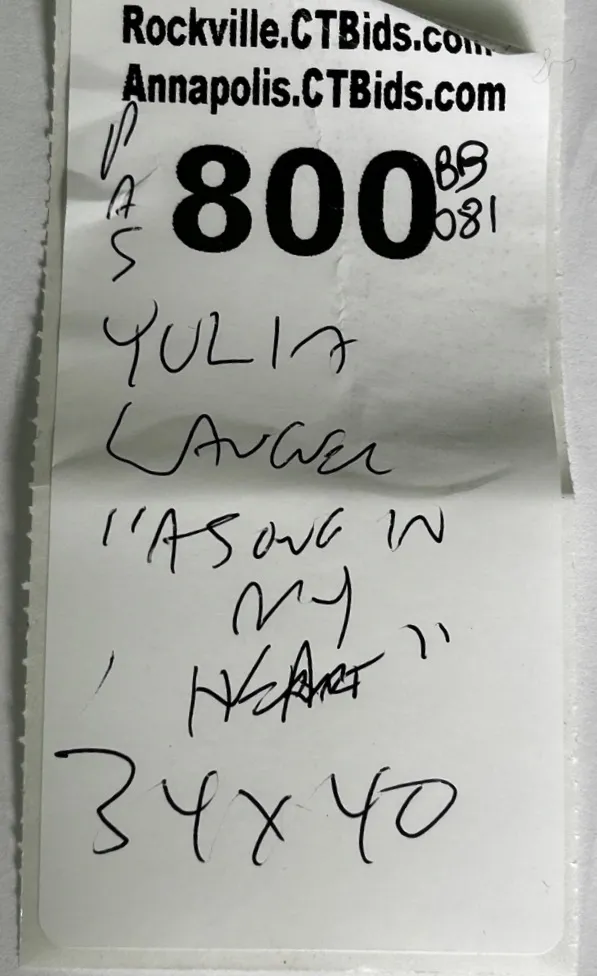 Rockville.CTBids.com
Annapolis.CTBids.com
800
BB
081
YULIA
"A SONG IN
MY
HEART"
34x40